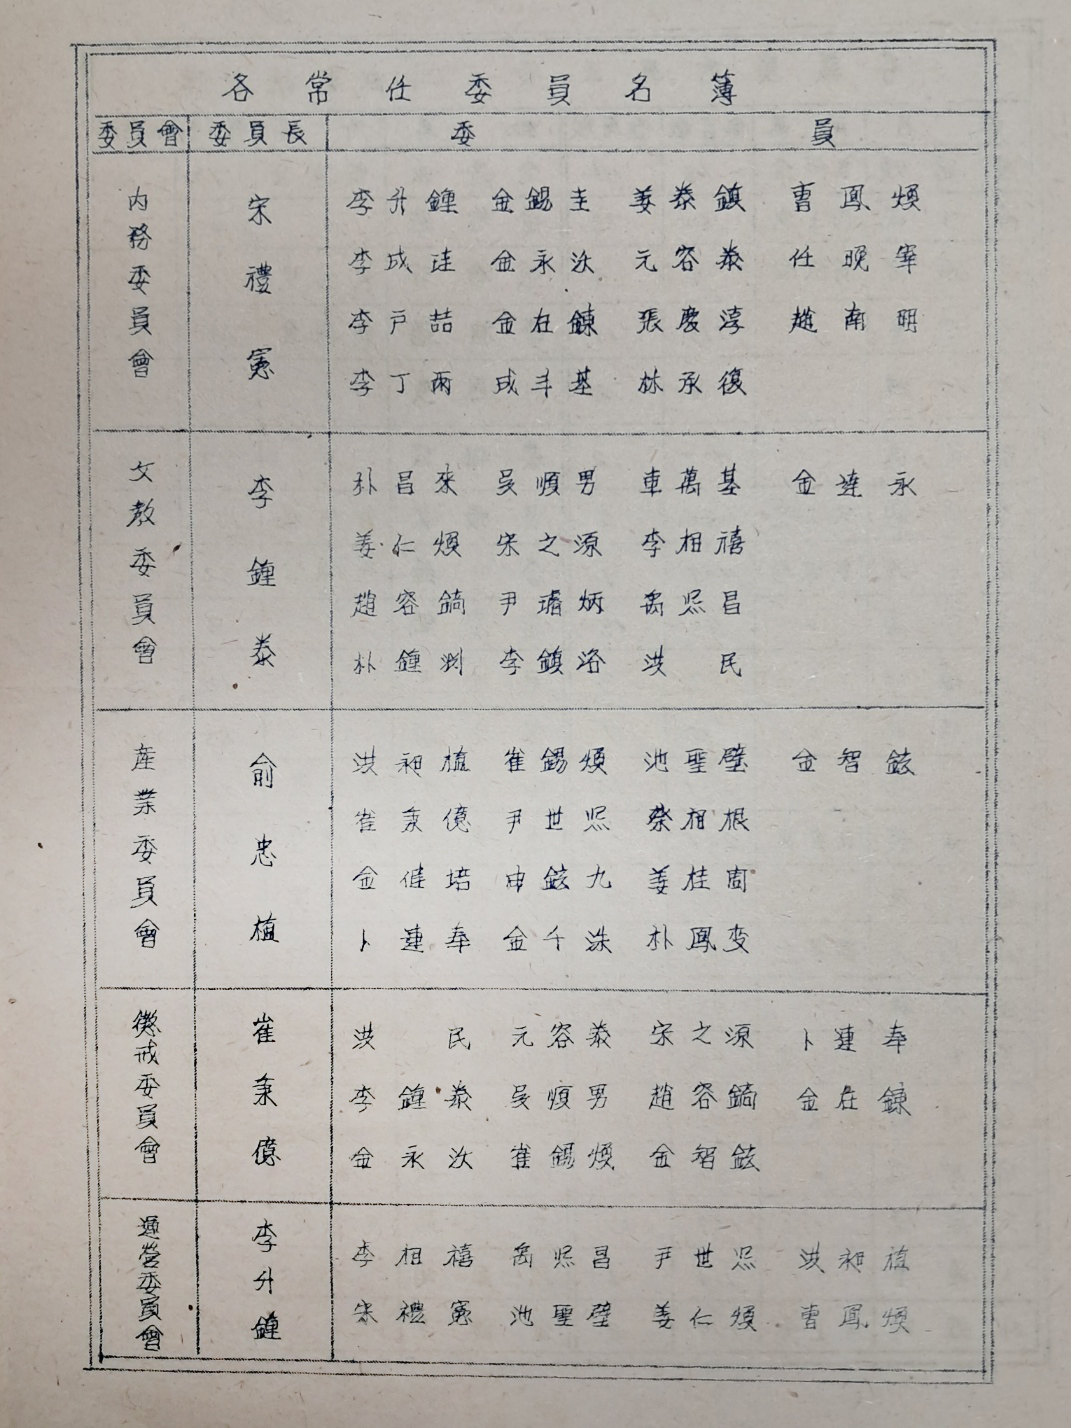 各常任委員名簿
委員會 委員長 委員
內務委員會 宋禮憲
李升鍾 金錫圭 姜泰鎭 曺鳳煥
李成珪 金永汝 元容泰 任晩宰
李戶喆 金在鍊 張慶淳 趙南明
李丁雨 成斗基 林承復
文敎委員會 李鍾泰
朴昌來 吳順男 車萬基 金達永
姜仁煥 宋之源 李相禧
趙容鎬 尹璿炳 禹熙昌
朴鍾渕 李鎭洛 洪 民
産業委員會 俞忠植
洪昶植 崔錫煥 池聖璧 金智鉉
崔秉億 尹世熙 蔡相根
金健培 申鉉九 姜桂周
卜連奉 金千洙 朴鳳変
懲戒委員會 崔秉億
洪 民 元容泰 宋之源 卜連奉
李鍾泰 吳順男 趙容鎬 金在鍊
金永汝 崔錫煥 金智鉉
運營委員會 李升鍾
李相禧 禹熙昌 尹世熙 洪昶植
宋禮憲 池聖璧 姜仁煥 曺鳳煥